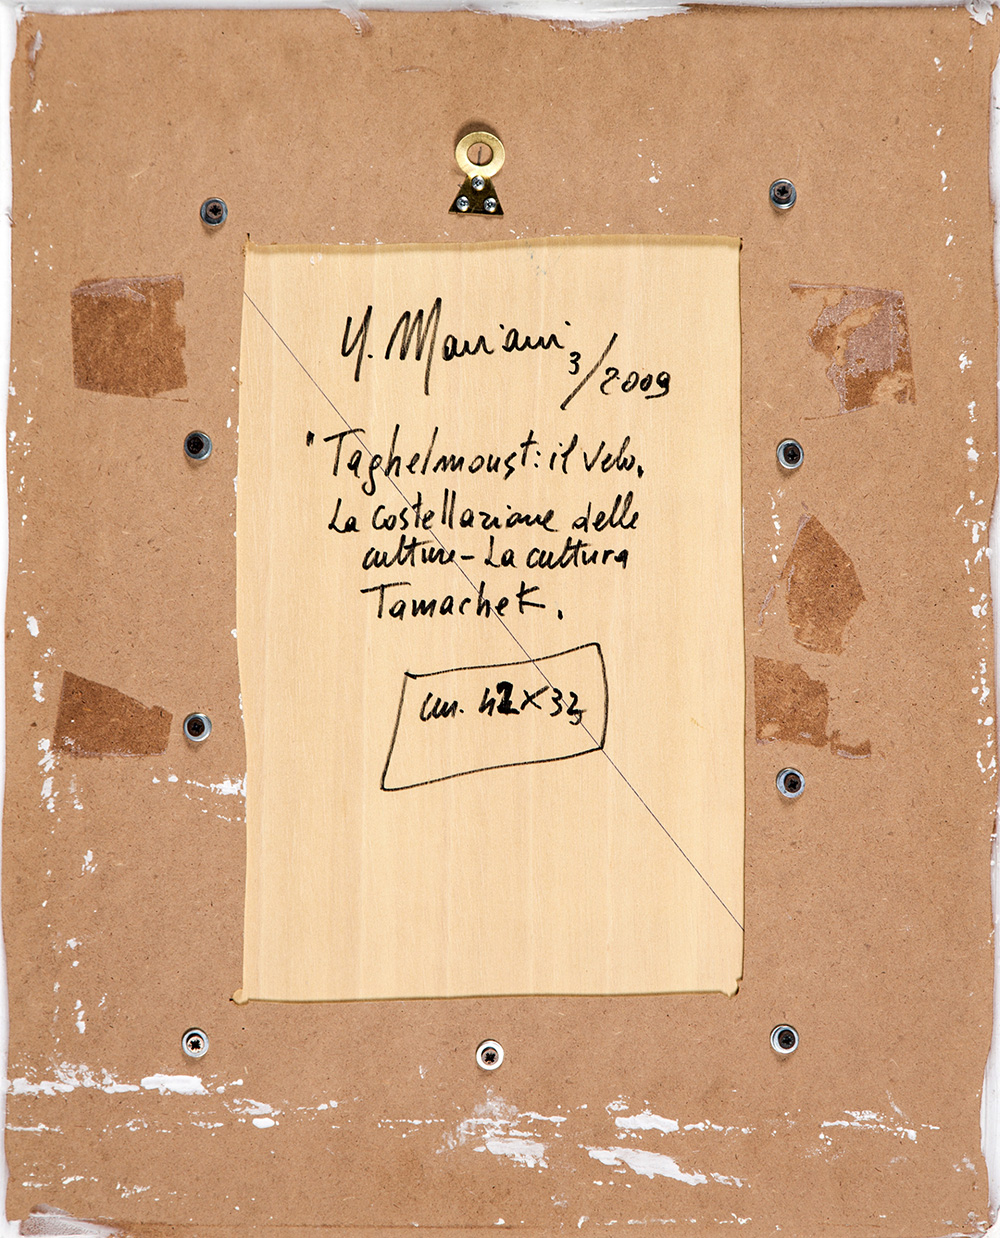 U. Mariani 3/2009
"Taghelmoust: il velo.
La costellazione delle
culture - La cultura
Tamachek.
cm. 42 x 32